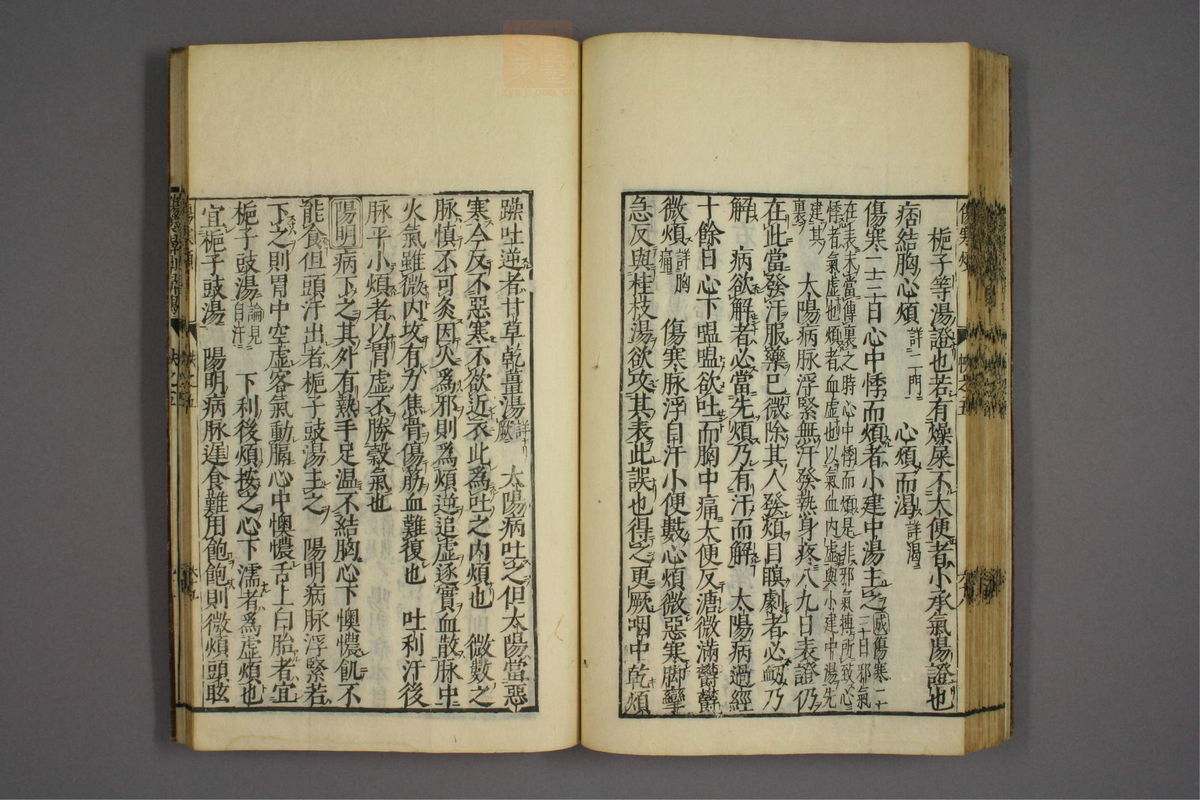 梔子等湯證也若有燥屎不大便者小承氣湯證也
痞結胸心煩詳二門 心煩而渴詳渴
傷寒二三日心中悸而煩者小建中湯主之成傷寒二十三日邪氣
在表未當傳裏之時心中悸而煩是非邪氣搏所致心
悸者氣虛也煩者血虛也以氣血内虛與小建中湯先
建其裏 太陽病脉浮緊無汗發熱身疼八九日表證仍
在此當發汗服藥已微除其人發煩目瞑劇者必衂乃
解 病欲解者必當先煩乃有汗而解 太陽病過經
十餘日心下嗢嗢欲吐而胸中痛大便反溏微滿鬱鬱
微煩詳胸痛 傷寒脉浮自汗小便數心煩微惡寒脚攣
急反與桂枝湯欲攻其表此誤也得之更厥咽中乾煩
躁吐逆者甘草乾薑湯詳厥 太陽病吐之但太陽當惡
寒今反不惡寒不欲近衣此爲吐之内煩也 微數之
脉慎不可灸因火爲邪則爲煩逆追虛逐實血散脉中
火氣雖微内攻有力焦骨傷筋血難復也 吐利汗後
脉平小煩者以胃虛不勝穀氣也
陽明病下之其外有熱手足温不結胸心下懊憹飢不
能食但頭汗出者梔子豉湯主之 陽明病脉浮緊若
下之則胃中空虛客氣動膈心中懊憹舌上白胎者宜
梔子豉湯論見自汗 下利後煩按之心下濡者爲虛煩也
宜梔子豉湯 陽明病脉遲食難用飽飽則微煩頭眩